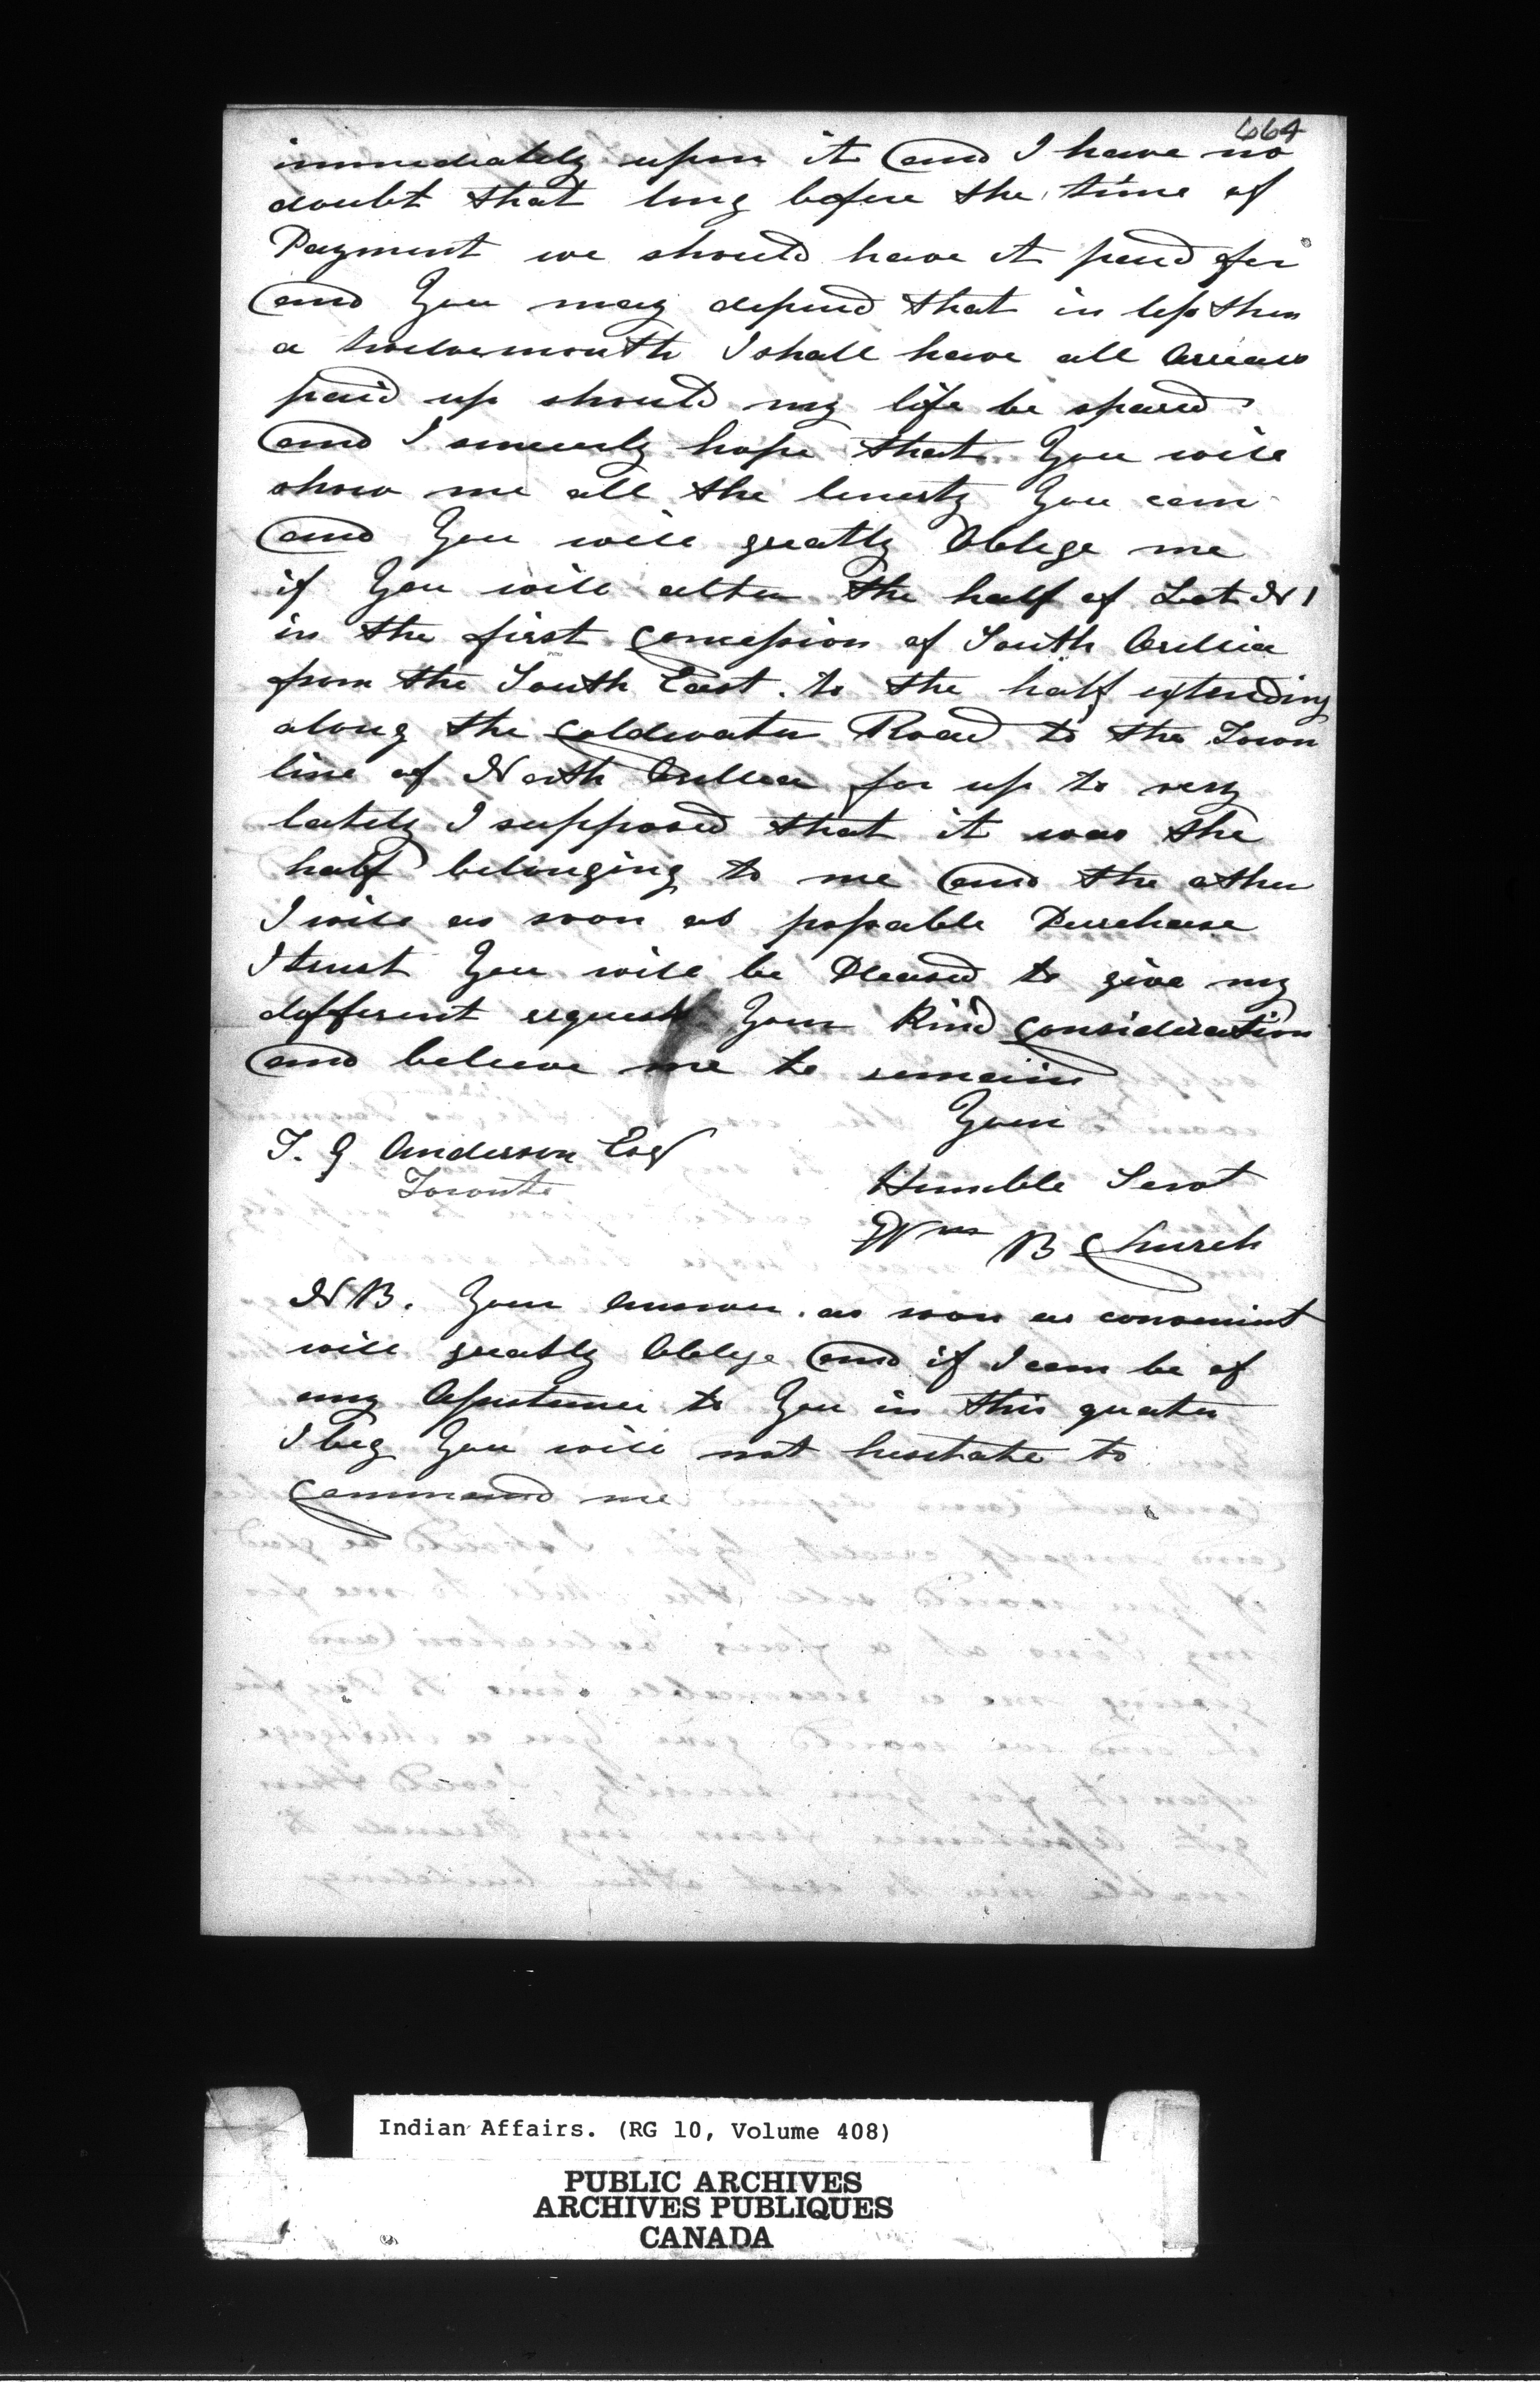 664
immediately upon it and I have no
doubt that long before the time of
Payment we should have it paid for
and You may depend that in less then
a twelvemonth I shall have all Arrears
paid up should my life be spared
and I sincerly hope that You will
show me all the lenity You can
and You will greatly Oblige me
if You will alter the half of Lot N 1
in the first Concession of South Orillia
from the South East. to the half extending
along the Coldwater Road to the Town
line of North Orillia for up to very
lately I supposed that it was the
half belonging to me and the other
I will as soon as possable Purchase
I trust You will be Pleased to give my
different requests Your Kind Consideration
and believe me to remain
Your
T. G Anderson Esq
Toronto
Humble Servt
Wm B Church
NB. Your Answer. as soon as convenient
will greatly Oblige and if I can be of
any Assistance to You in this quater
I beg You will not hesitate to
Command me
Indian Affairs. (RG 10, Volume 408)
PUBLIC ARCHIVES
ARCHIVES PUBLIQUES
CANADA